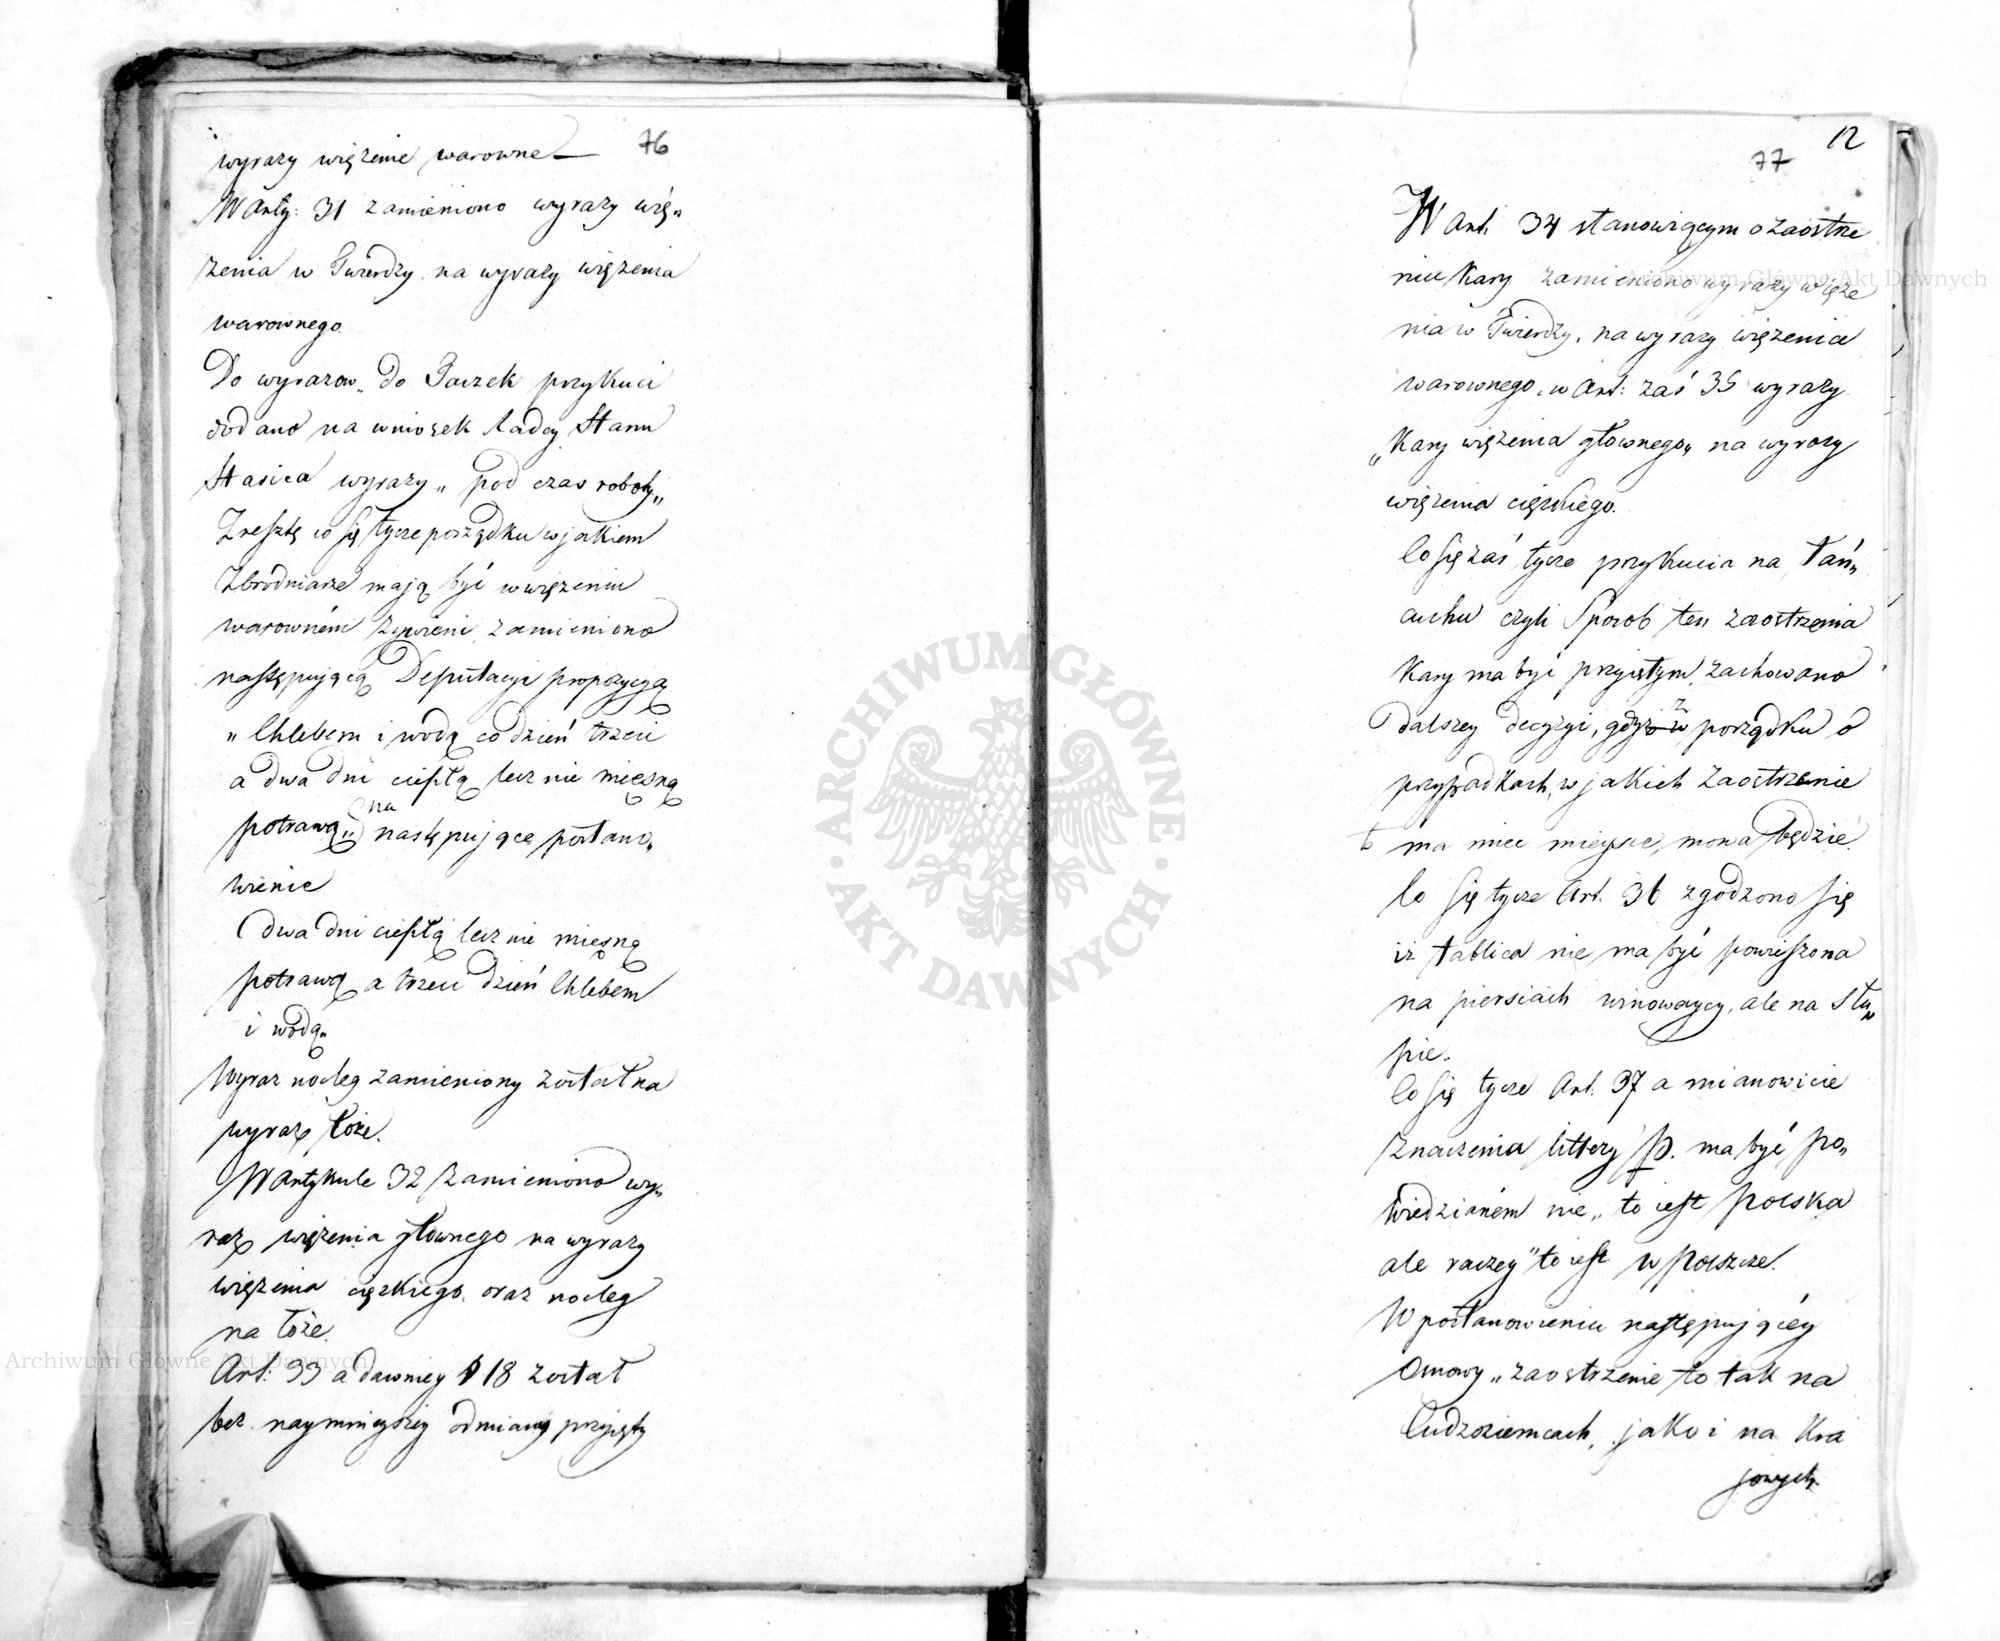 76
wyrazy więzenie warowne —
W Arty: 31 zamieniono wyrazy wię„
zenia w Twierdzy na wyrazy więzenia
warownego.
Do wyrazow „ do Taczek przykuci
dodano na wniosek Radcy Stanu
Stasica wyrazy „ pod czas roboty„
Zresztą co się tycze porządku w jakiem
Zbrodniarze mają być w więzeniu
warowném żywieni, zamieniono
następującą Deputacyi propozycyą
„ Chlebem i wodą co dzień trzeci
a dwa dni ciepłą lecz nie mięsną
potrawą„ na następujące postano„
wienie
Dwa dni ciepłą lecz nie mięsną
potrawą a trzeci dzień Chlebem
i wodą„
Wyraz nocleg zamieniony został na
wyraz łoże.
W Artykule 32 zamieniono wy„
razy więzienia głownego na wyrazy
więzenia cięzkiego, oraz nocleg
na łoże.
Art: 33 a dawniey § 18 został
bez naymnieyszey odmiany przyięty
12
77
W Art. 34 stanowiącym o zaostrze
niu Kary zamieniono wyrazy więze
nia w Twierdzy, na wyrazy więzenia
warownego, w Art: zaś 35 wyrazy
„Kary więzenia głownego„ na wyrazy
więzenia cięzkiego.
Co się zaś tycze przykucia na łań„
cuchu czyli Sposob ten zaostrzenia
Kary ma być przyiętym, zachowano
dalszey decyzyi, gdyż w porządku o
przypadkach, w jakich zaostrzenie
to ma mieć mieysce, mowa będzie.
Co się tycze Art. 36 zgodzono się
iż tablica nie ma być powieszona
na piersiach winowaycy, ale na Słu„
pie.
Co się tycze Art. 37 a mianowicie
Znaczenia littery P. ma być po„
wiedzianém nie „ to iest Polska
ale raczey " to iest w Polszcze.
W postanowieniu następującéy
Osnowy „ zaostrzenie to tak na
Cudzoziemcach, jako i na Kra
jowych
Archiwum Główne Akt Dawnych
Archiwum Główne Akt Dawnych
· ARCHIWUM GŁÓWNE · AKT DAWNYCH